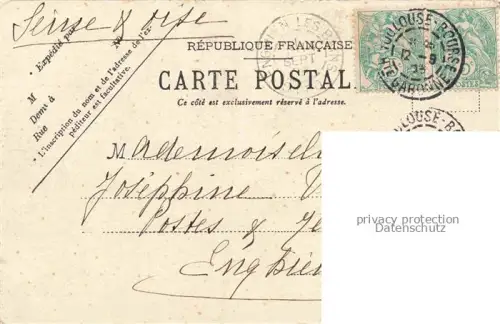 Seine & oise
RÉPUBLIQUE FRANÇAISE
CARTE POSTALE
Ce côté est exclusivement réservé à l'adresse.
Expédié par
M
Demt à
Rue
N
L'inscription du nom et de l'adresse de l'ex-
péditeur est facultative.
ENGHIEN LES
SEPT
TOULOUSE-BOURSE
GARONNE
TOULOUSE-BO
Mademoisel
Joséphine
Postes &
Enghie
privacy protection
Datenschutz